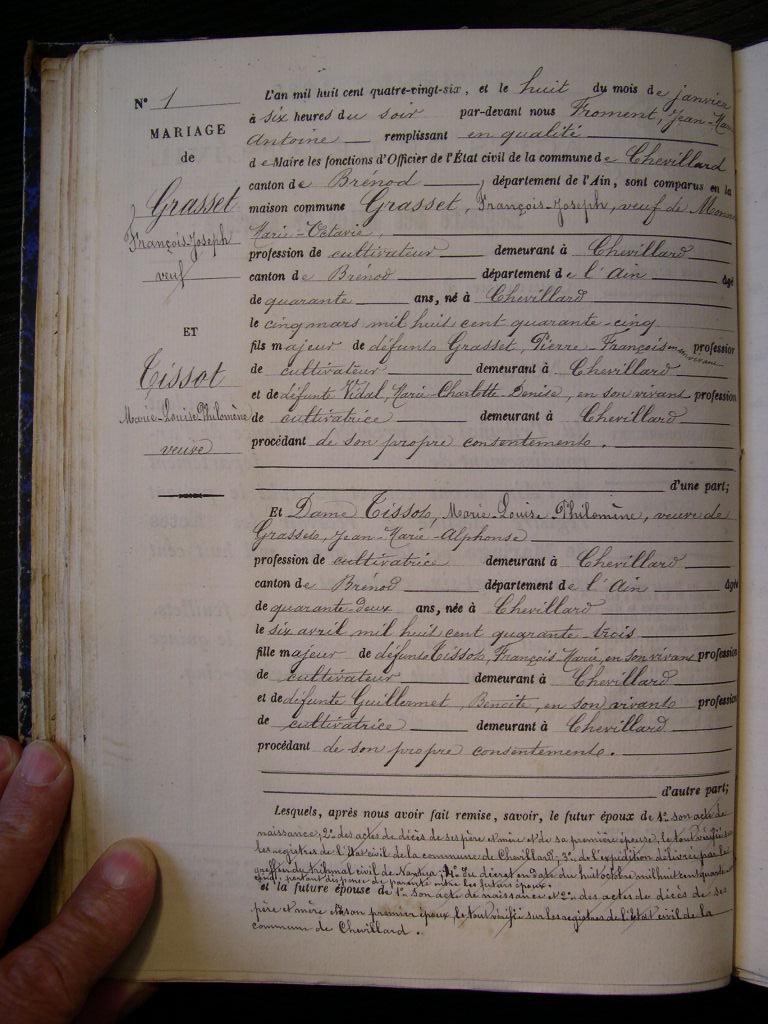 N° 1
MARIAGE
de
Grasset
François-Joseph
veuf
ET
Tissot
Marie-Louise Philomène
veuve
L'an mil huit cent quatre-vingt-six, et le huit du mois de janvier
à six heures du soir par-devant nous Froment, Jean-Marie
Antoine remplissant en qualité
de Maire les fonctions d'Officier de l'État civil de la commune de Chevillard
canton de Brénod, département de l'Ain, sont comparus en la
maison commune Grasset, François-Joseph, veuf de
Marie-Octavie,
profession de cultivateur demeurant à Chevillard
canton de Brénod département de l'Ain âgé
de quarante ans, né à Chevillard
le cinq mars mil huit cent quarante-cinq
fils majeur de défunt Grasset, Pierre-François en son vivant profession
de cultivateur demeurant à Chevillard
et de défunte Vidal, Marie-Charlotte Denise, en son vivant profession
de cultivatrice demeurant à Chevillard
procédant de son propre consentement.
d'une part;
Et Dame Tissot, Marie-Louise-Philomène, veuve de
Grasset, Jean-Marie-Alphonse
profession de cultivatrice demeurant à Chevillard
canton de Brénod département de l'Ain âgée
de quarante-deux ans, née à Chevillard
le six avril mil huit cent quarante-trois
fille majeur de défunt Tissot, François Marie, en son vivant profession
de cultivateur demeurant à Chevillard
et de défunte Guillermet, Benoite, en son vivant profession
de cultivatrice demeurant à Chevillard
procédant de son propre consentement.
d'autre part;
Lesquels, après nous avoir fait remise, savoir, le futur époux de 1° son acte de
naissance; 2° des actes de décès de ses père et mère et de sa première épouse, le tout vérifié sur
les registres de l'Etat civil de la commune de Chevillard; 3° de l'expédition délivrée par le
greffier du tribunal civil de Nantua, du décret en date du huit octobre mil huit cent quatre-vingt
cinq, portant dispense de parenté entre les futurs époux.
et la future épouse de 1° son acte de naissance et 2° des actes de décès de ses
père et mère et de son premier époux, le tout vérifié sur les registres de l'état civil de la
commune de Chevillard.